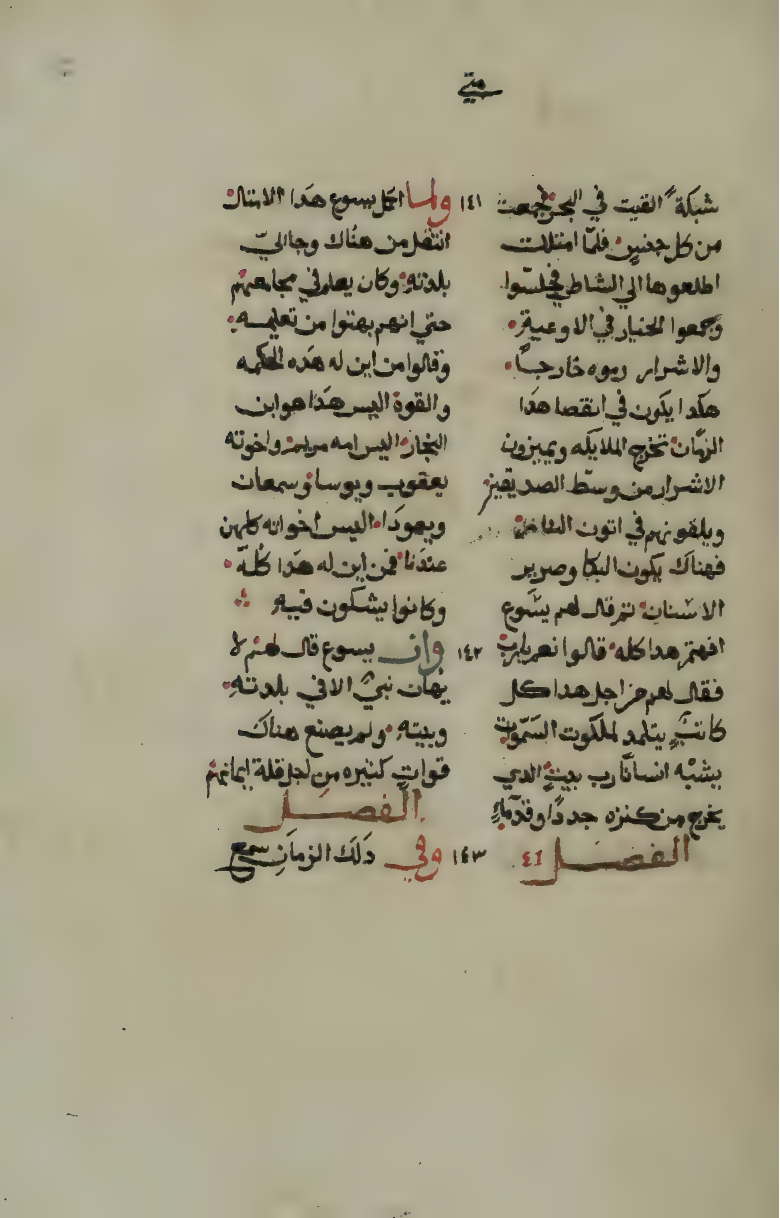 متي
شبكة القيت في البحر فجمعت
من كل جنس فلمّا امتلات
اطلعوها الي الشاطي فجلسوا
وجمعوا الخيار في الاوعية
والاشرار رموه خارجاً
هكدا يكون في انقصا هدا
الزمان تخرج الملايكه ويميزون
الاشرار من وسط الصديقين
ويلقونهم في اتون النار
فهناك يكون البكا وصرير
الاسنان ثم قال لهم يسوع
افهمتم هدا كله قالوا نعم يارب
فقال لهم من اجل هدا كل
كاتب يتلمد لملكوت السموات
يشبه انسانا رب بيت الدي
يخرج من كنزه جددا وقدماء
الفصل ٤٤
١٤١ ولما اكمل يسوع هدا الامتال
انتقل من هناك وجا الي
بلدته وكان يعلم في مجامعهم
حتي انهم بهتوا من تعليمه
وقالوا من اين له هده الحكمه
والقوة اليس هدا هو ابن
النجار اليس امه مريم واخوته
يعقوب ويوسا وسمعان
ويهودا اليس اخواته كلهن
عندنا فمن اين له هدا كلّه
وكانوا يشكون فيه
١٤٢ وان يسوع قال لهم لا
يهان نبي الا في بلدته
وبيته ولم يصنع هناك
قوات كثيره من اجل قلة ايمانهم
الفصل
١٤٣ وفي دلك الزمان سمع